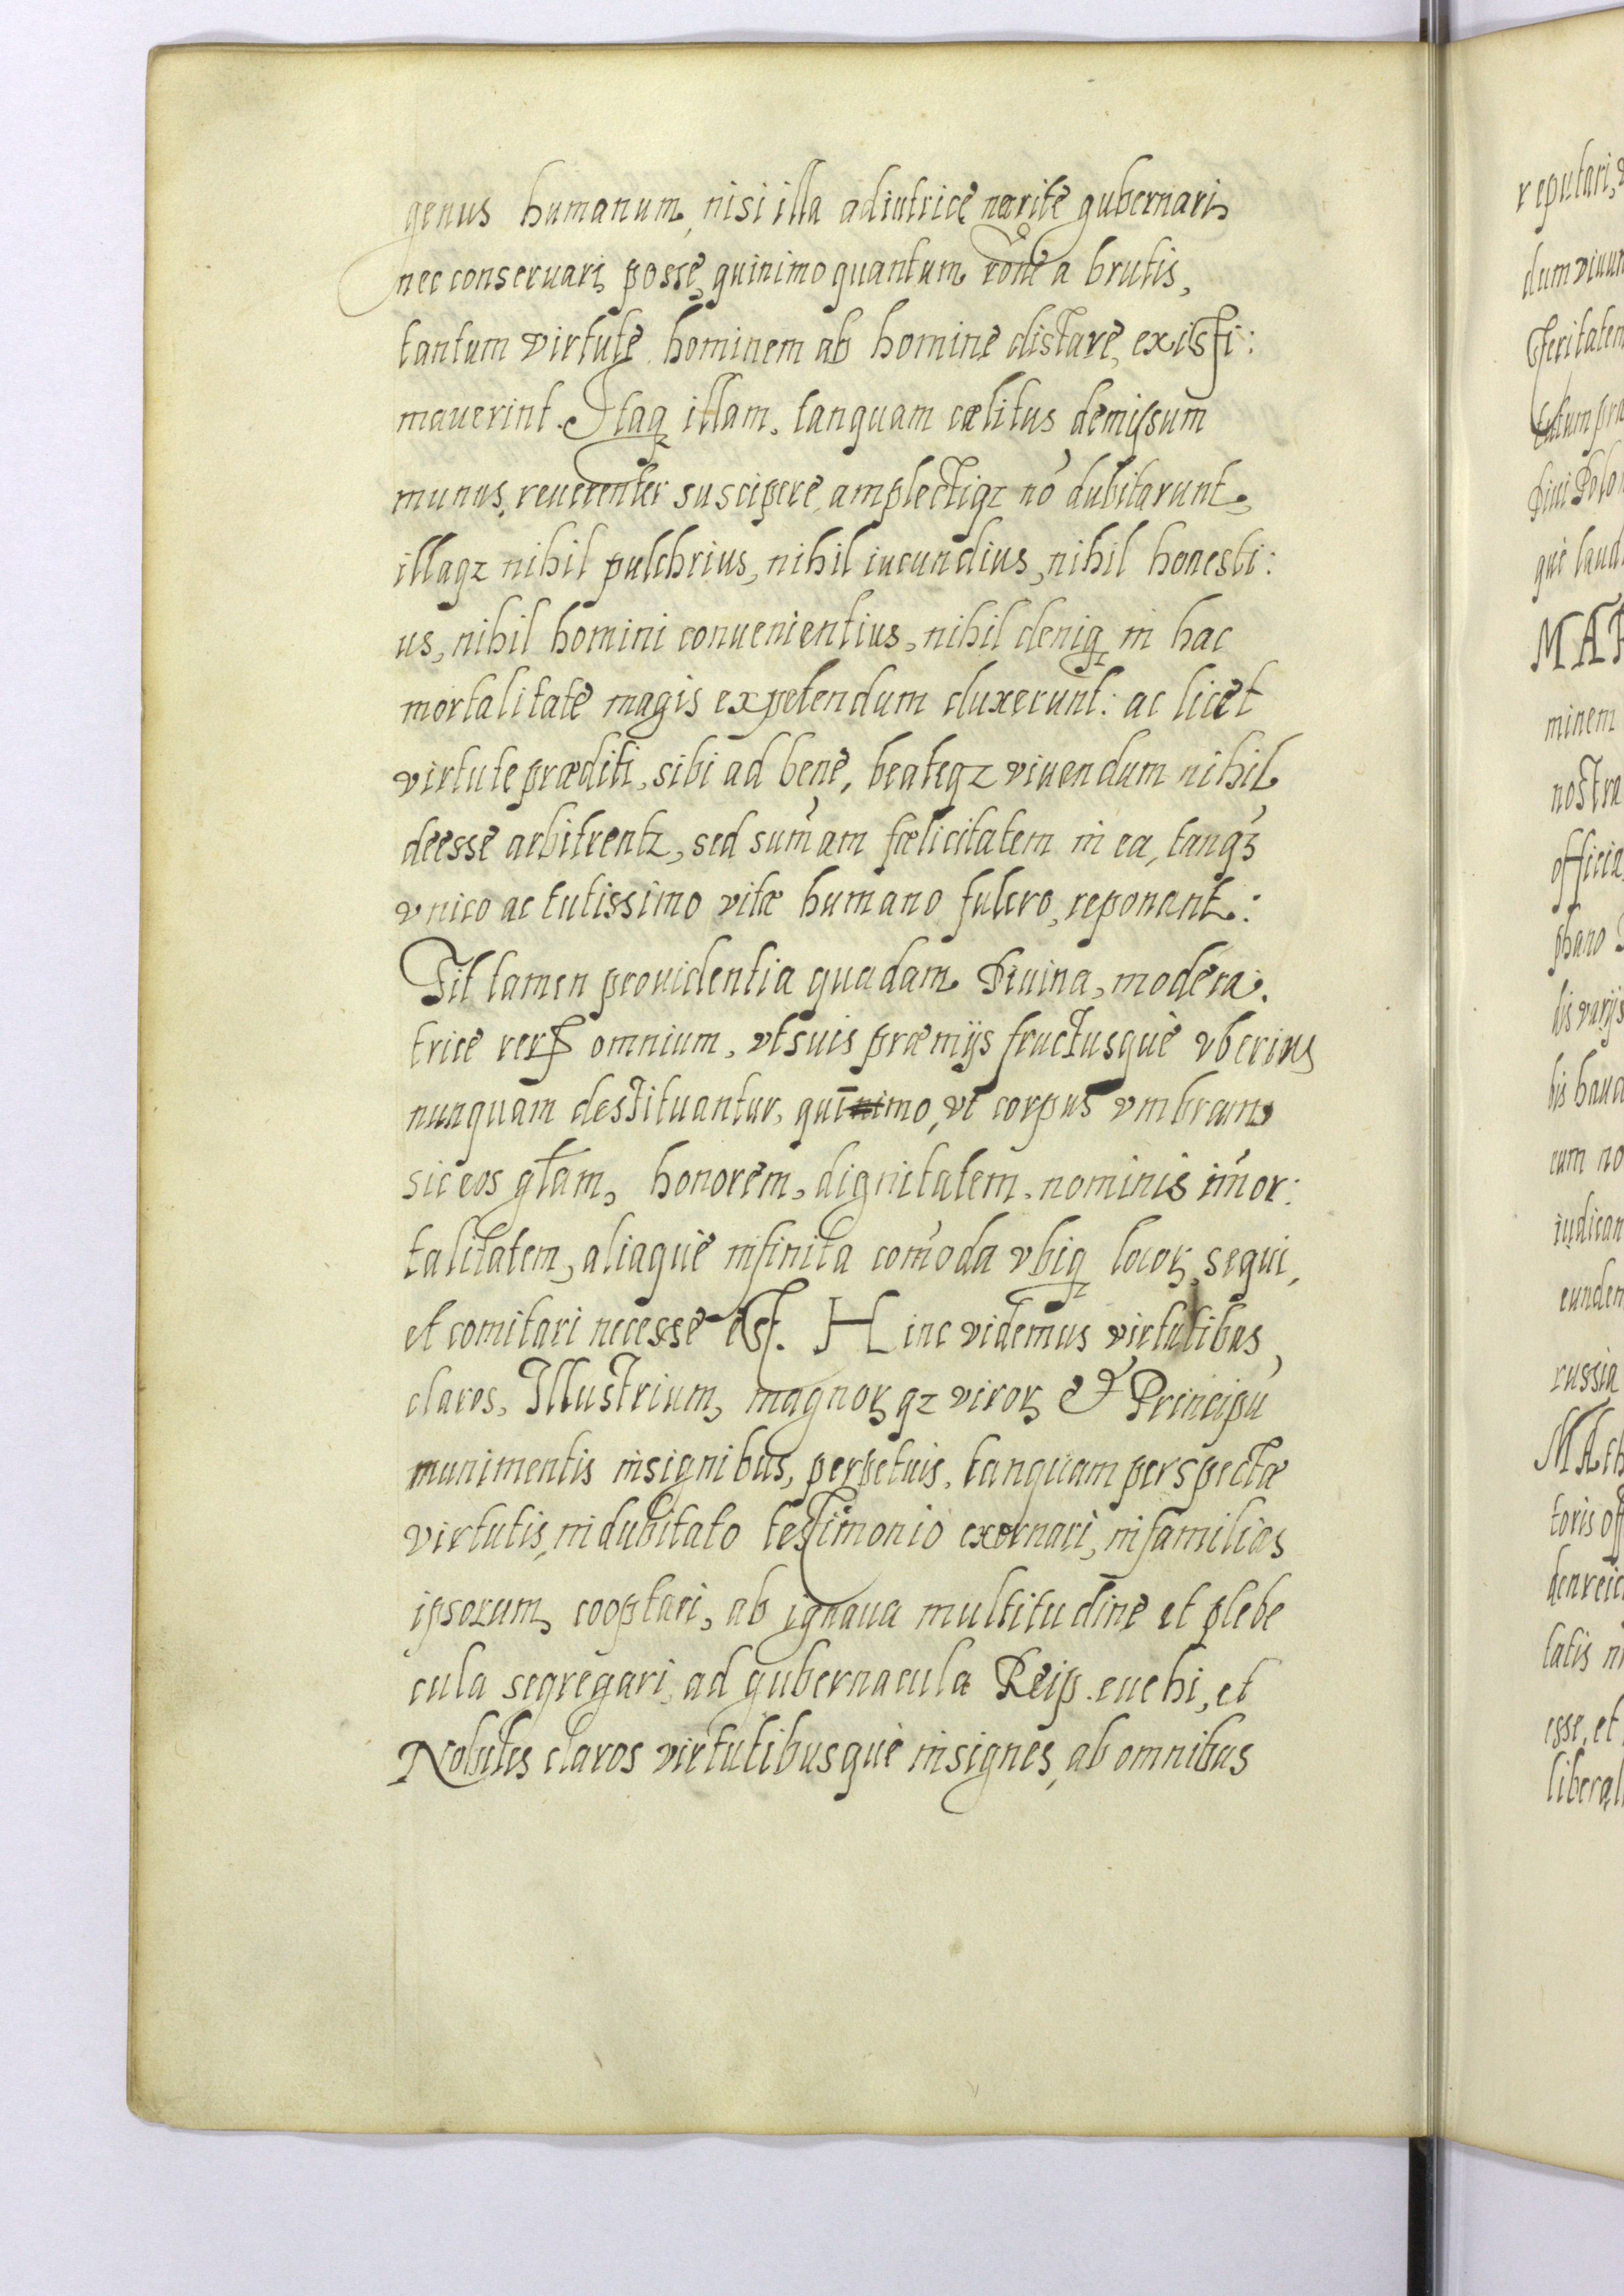 genus humanum, nisi illa adiutrice nec rite gubernari,
nec conseruari posse, quinimo quantum rōne a brutis,
tantum virtute hominem ab homine distare, existi:
mauerint. Itaqꝫ illam, tanquam cælitus demissum
munus, reuerenter suscipere, amplectiqꝫ nō dubitarunt,
illaqꝫ nihil pulchrius, nihil iucundius, nihil honesti:
us, nihil homini conuenientius, nihil deniqꝫ in hac
mortalitate magis expetendum duxerunt: ac licet
virtute præditi, sibi ad bene, beateqꝫ viuendum nihil
deesse arbitrentꝫ, sed sum̄am fœlicitatem in ea, tanqꝫ
vnico ac tutissimo vitæ humano fulcro, reponant:
Fit tamen prouidentia quadam Diuina, modera:
trice rerꝝ omnium, vt suis præmijs fructusquè vberius
nunquam destituantur, quīnimo, vt corpus vmbram
sic eos gl̄am, honorem, dignitatem, nominis im̄or:
talitatem, aliaquè infinita com̄oda vbiqꝫ locoꝝ, sequi,
et comitari necesse est. Hinc videmus virtutibus
claros, Illustrium, magnoꝝ qꝫ viroꝝ & Principū
munimentis insignibus, perpetuis, tanquam perspectæ
virtutis, indubitato testimonio exornari, in familias
ipsorum, cooptari, ab ignaua multitudine et plebe
cula segregari, ad gubernacula Reip. euehi, et
Nobiles claros virtutibusquè insignes, ab omnibus
reputari,
dum viuun
teritaten
Diui Polo
què laud
MAR
minem
nostra
officia
phano
lis varijs
bis haud
cum no
iudican
eundem
russia
toris off
tatis
esse, et
liberal